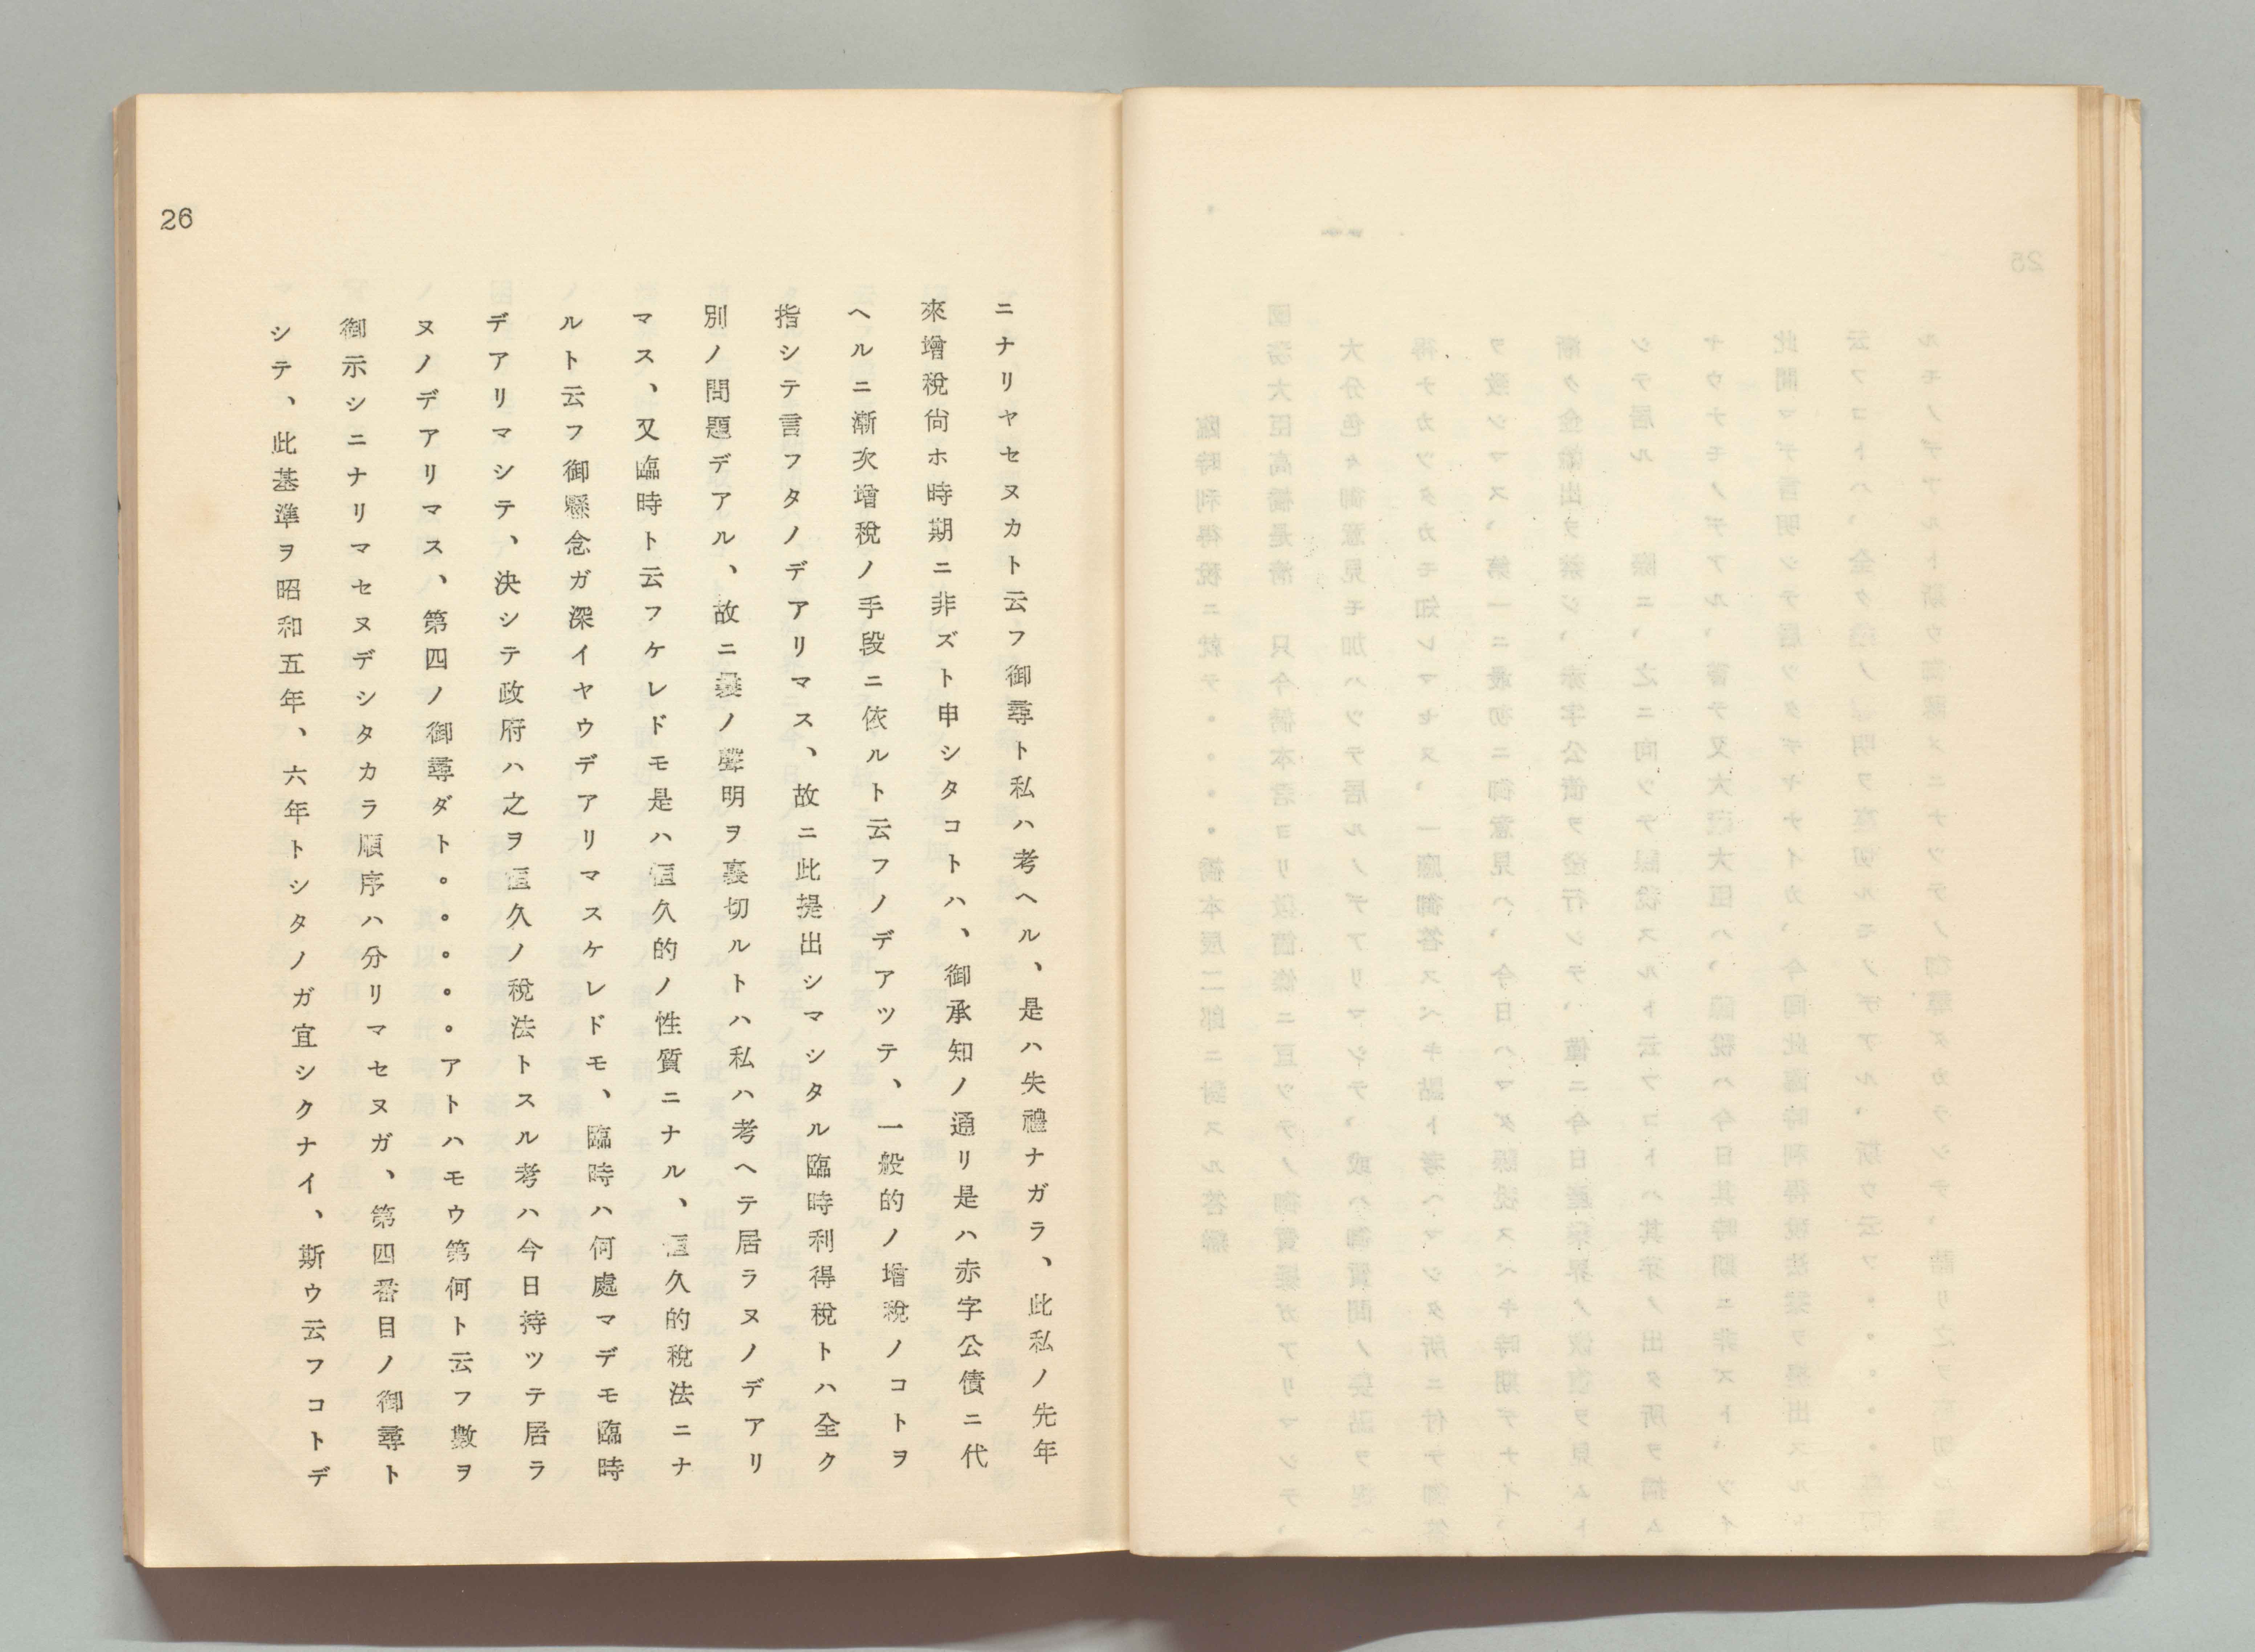 26
ニナリヤセヌカト云フ御尋ト私ハ考ヘル、是ハ失禮ナガラ、此私ノ先年
來增稅尙ホ時期ニ非ズト申シタコトハ、御承知ノ通リ是ハ赤字公債ニ代
ヘルニ漸次增稅ノ手段ニ依ルト云フノデアツテ、一般的ノ增稅ノコトヲ
指シテ言フタノデアリマス、故ニ此提出シマシタル臨時利得稅トハ全ク
別ノ問題デアル、故ニ曩ノ聲明ヲ裏切ルトハ私ハ考ヘテ居ラヌノデアリ
マス、又臨時ト云フケレドモ是ハ恒久的ノ性質ニナル、恒久的稅法ニナ
ルト云フ御懸念ガ深イヤウデアリマスケレドモ、臨時ハ何處マデモ臨時
デアリマシテ、決シテ政府ハ之ヲ恒久ノ稅法トスル考ハ今日持ツテ居ラ
ヌノデアリマス、第四ノ御尋ダト。。。。。アトハモウ第何ト云フ數ヲ
御示シニナリマセヌデシタカラ順序ハ分リマセヌガ、第四番目ノ御尋ト
シテ、此基準ヲ昭和五年、六年トシタノガ宜シクナイ、斯ウ云フコトデ